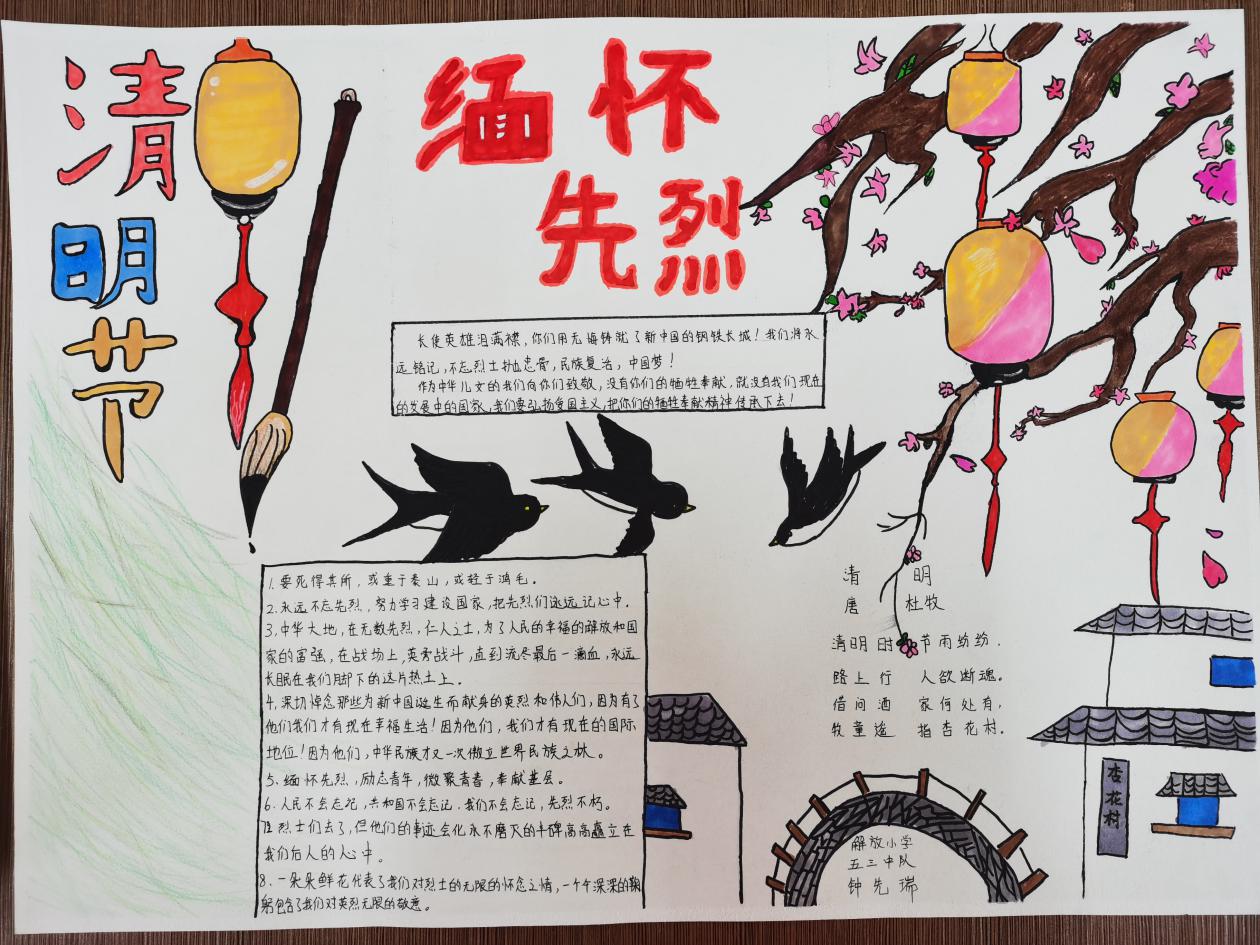 清明节
缅怀
先烈
长使英雄泪满襟,你们用无悔铸就了新中国的钢铁长城!我们将永
远铭记,不忘烈士朴血忠骨,民族复活,中国梦!
作为中华儿女的我们向你们致敬,没有你们的牺牲奉献,就没有我们现在
的发展中的国家,我们要弘扬爱国主义,把你们的牺牲奉献精神传承下去!
1.要死得其所,或重于泰山,或轻于鸿毛。
2.永远不忘先烈,努力学习建设国家,把先烈们永远记心中.
3,中华大地,在无数先烈,仁人之士,为了人民的幸福的解放和国
家的富强,在战场上,英勇战斗,直到流尽最后一滴血,永远
长眠在我们脚下的这片热土上。
4.深切悼念那些为新中国诞生而献身的英烈和伟人们,因为有了
他们我们才有现在幸福生活!因为他们,我们才有现在的国际
地位!因为他们,中华民族才又一次傲立世界民族之林。
5.缅怀先烈,励志青年,微聚青春,奉献基层。
6.人民不会忘记,共和国不会忘记.我们不会忘记,先烈不朽。
烈士们去了,但他们的事迹会化永不磨灭的丰碑高高矗立在
我们后人的心中。
8.一朵朵鲜花代表了我们对烈士的无限的怀念之情,一个个深深的鞠
躬包含了我们对英烈无限的敬意。
清 明
唐 杜牧
清明时节雨纷纷.
路上行人欲断魂。
借问酒家何处有,
牧童遥指杏花村.
杏花村
解放小学
五三中队
钟先瑞